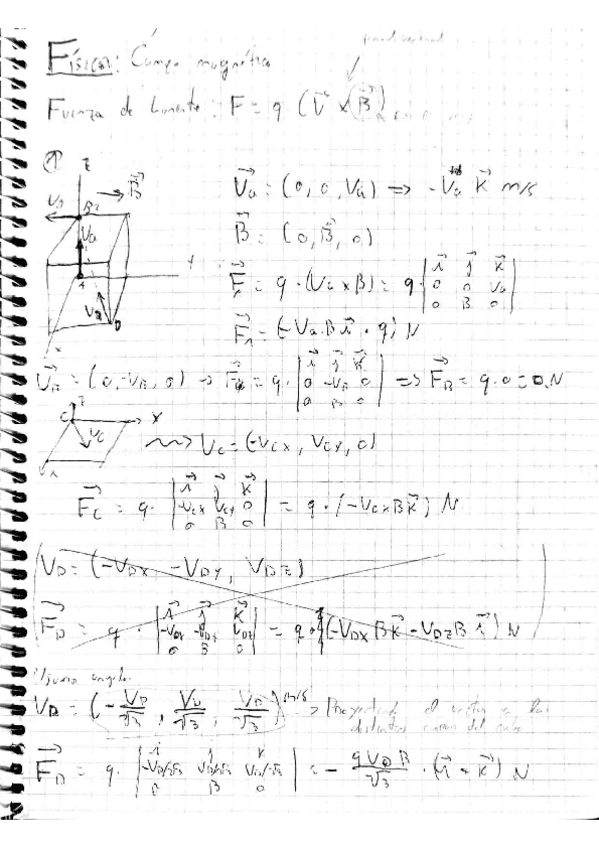 Física: Campo magnético
Fuerza de Lorente: F = q (V⃗ x B⃗)
z
V⃗a = (0, 0, Va) => -Va K⃗ m/s
B⃗ = (0, B⃗, 0)
F⃗A = q · (Va x B) = q · | i⃗ j⃗ k⃗ | 0 0 Va | 0 B 0 |
F⃗A = (-Va·B i⃗ · q) N
V⃗B = (0, -VB, 0) → F⃗B = q · | i⃗ j⃗ k⃗ | 0 -VB 0 | 0 B 0 | => F⃗B = q · 0 = 0 N
Vc = (-Vcx, Vcy, 0)
F⃗c = q · | i⃗ j⃗ k⃗ | -Vcx Vcy 0 | 0 B 0 | = q · (-Vcx B k⃗) N
VD = (-VDx -VDy, VDz)
F⃗D = q · | i⃗ j⃗ k⃗ | -VDx -VDy VDz | 0 B 0 | = q · (-VDx B k⃗ - VDz B i⃗) N
VD = (-VD/√3, VD/√3, VD/√3) m/s → Proyectando el vector
del cubo
F⃗D = q · | i j k | -VD/√3 VD/√3 VD/√3 | 0 B 0 | = - qVDB/√3 · (i⃗ + k⃗) N